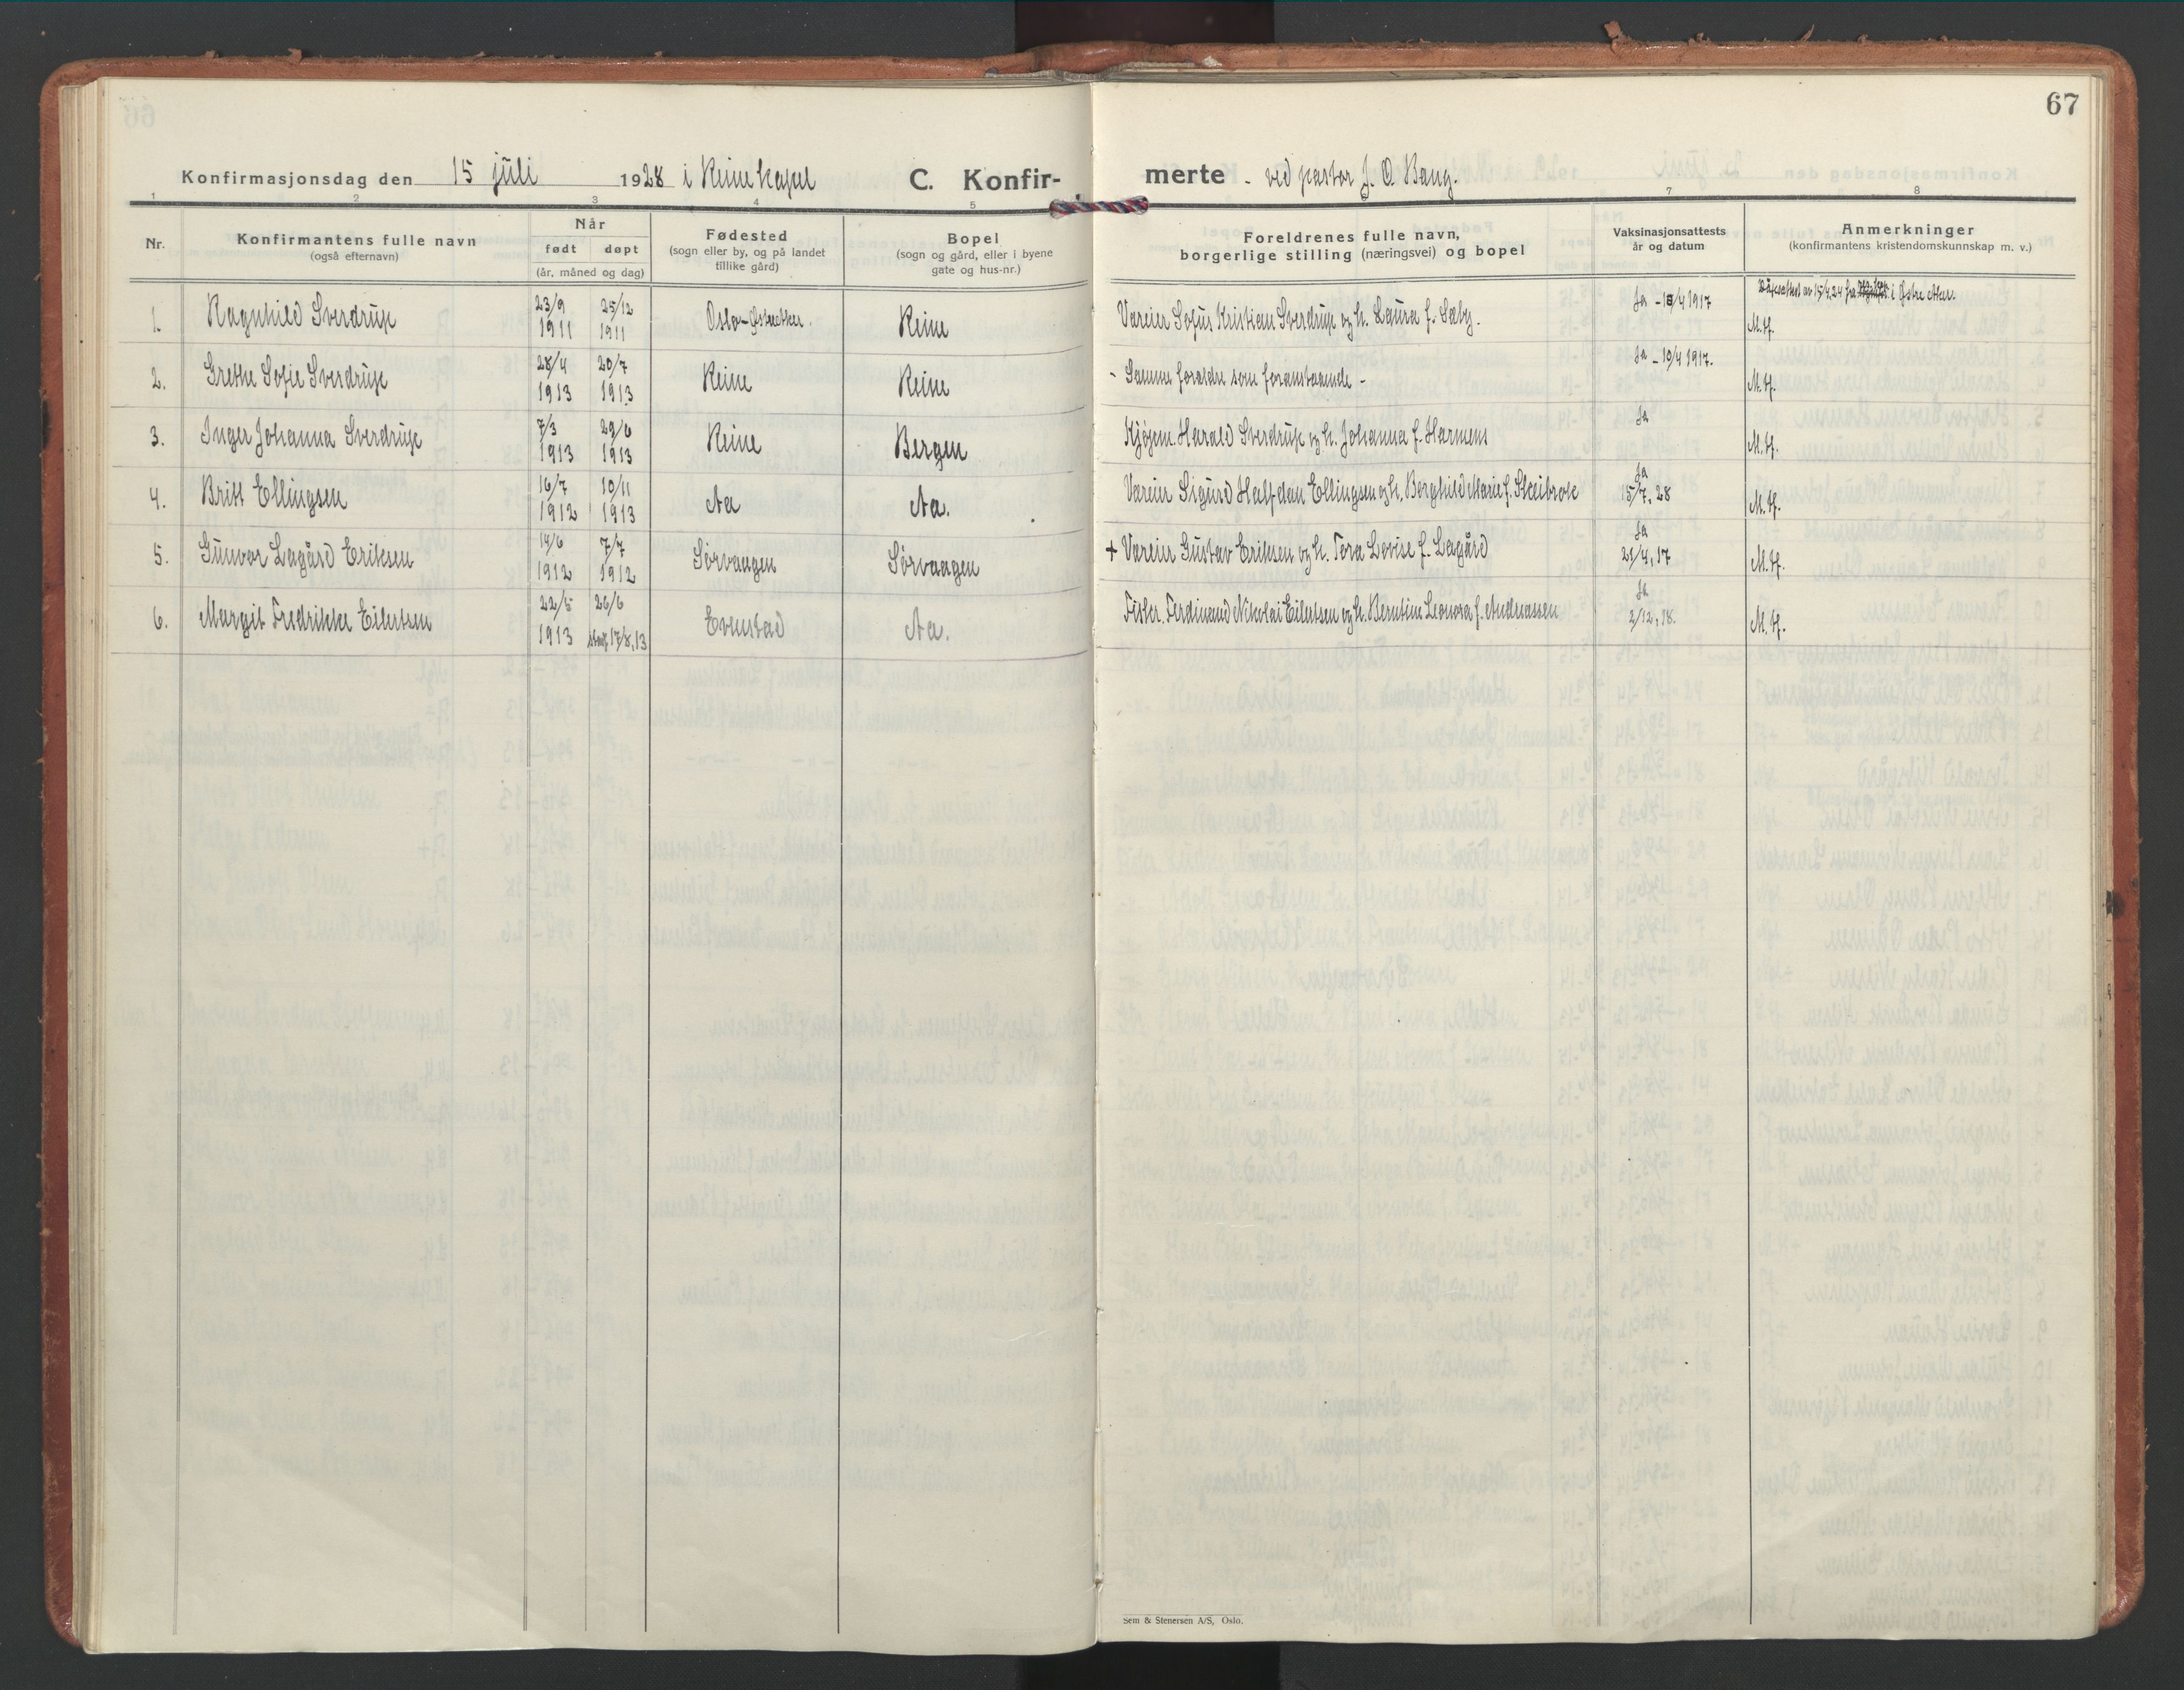 67
Konfirmasjonsdag den 15 juli 1928 i Reine kapel C. Konfir- merte - ved pastor J. O. Bang.
1 2 3 4 5 7 8
Nr. Konfirmantens fulle navn Når Fødested Bopel Foreldrenes fulle navn, Vaksinasjonsattests Anmerkninger
(også efternavn) født døpt (sogn eller by, og på landet (sogn og gård, eller i byene borgerlige stilling (næringsvei) og bopel år og datum (konfirmantens kristendomskunnskap m. v.)
(år, måned og dag) tillike gård) gate og hus-nr.)
1. Ragnhild Sverdrup 23/9 1911 25/12 1911 Oslo-Østre Aker. Reine Væreier Sofus Kristian Sverdrup og h. Laura f. Sæby. Ja - 18/4 1917 15/4.24 fra i Østre Aker. M.tf.
2. Grethe Sofie Sverdrup 28/4 1913 20/7 1913 Reine Reine - Samme forældre som foranstaaende - Ja - 19/4 1917. M.tf.
3. Inger Johanna Sverdrup 7/3 1913 29/6 1913 Reine Bergen Kjøpm. Harald Sverdrup og h. Johanna f. Harmens Ja M.tf.
4. Britt Ellingsen 16/7 1912 10/11 1913 Aa Aa. Væreier Sigurd Halfdan Ellingsen og h. Borghild Marie f. Skeibrok Ja 15/7, 28 M.tf.
5. Gunvor Lagård Eriksen 14/6 1912 7/7 1912 Sørvaagen Sørvaagen + Væreier Gustav Eriksen og h. Tora Lovise f. Lagård Ja 21/4, 17 M.tf.
6. Margit Fredrikke Eilertsen 22/5 1913 26/6 17/8, 13 Evenstad Aa. Fisker. Ferdinand Nikolai Eilertsen og h. Berntine Leonora f. Andreassen Ja 2/12, 18. M.tf.
Sem & Stenersen A/S, Oslo.